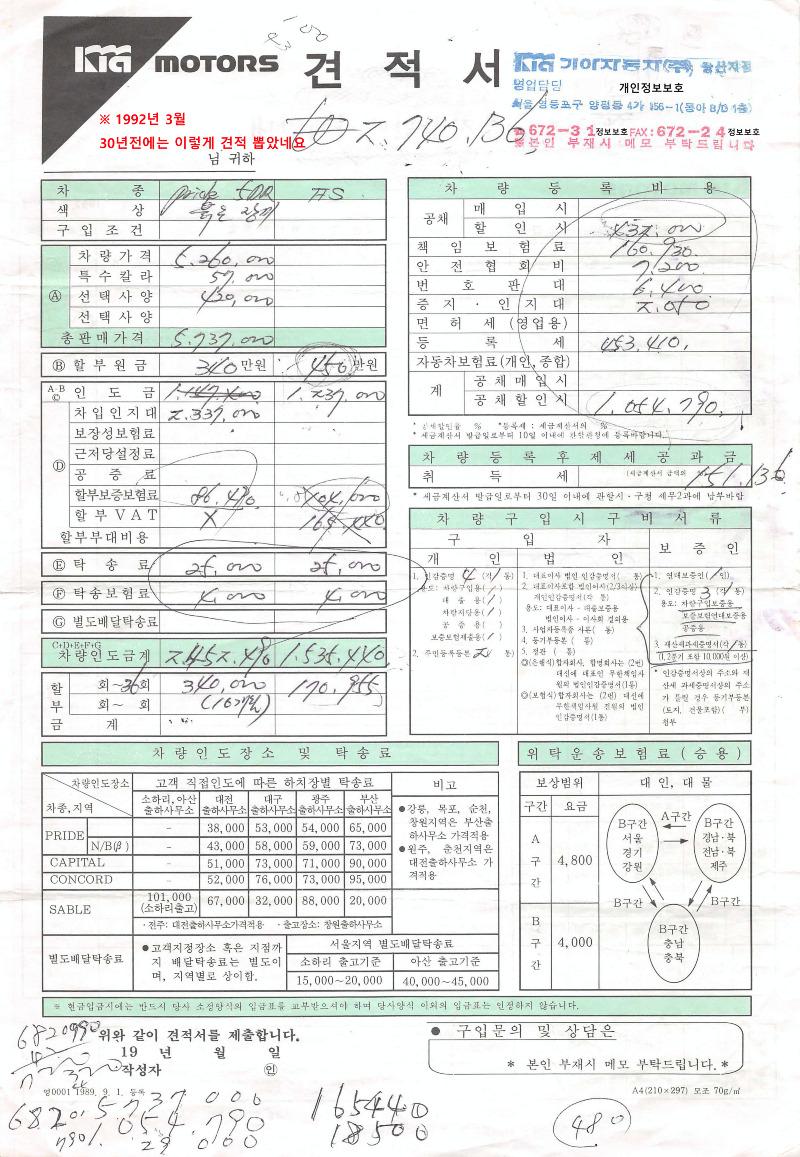 KIA MOTORS 견적서
기아자동차(주)
영업담당 개인정보보호
서울 영등포구 양평동 4가 156-1(동아 B/D 1층)
672-31정보보호 FAX:672-24정보보호
※본인 부재시 메모 부탁드립니다
※ 1992년 3월
30년전에는 이렇게 견적 뽑았네요
님 귀하
2.740.136
차종 pride 5DR
색상
구입조건
Ⓐ 차량가격 5.260,000
특수칼라 57,000
선택사양 420,000
선택사양
총판매가격 5.737,000
Ⓑ 할부원금 340만원 450만원
A-B Ⓒ 인도금 1.237.000
Ⓓ 차입인지대 2.337,000
보장성보험료
근저당설정료
공증료
할부보증보험료 86.490 104,000
할부VAT X
할부부대비용
Ⓔ 탁송료 25,000 25,000
Ⓕ 탁송보험료 4,000 4,000
Ⓖ 별도배달탁송료
C+D+E+F+G
차량인도금계 2.452.490 1.535.440
할부금 회~36회 340,000 170.955
회~ 회
계
차량등록비용
공채 매입시
할인시 432,000
책임보험료 160.930
안전협회비 7.200
번호판대 6.400
증지·인지대 2.050
면허세(영업용)
등록세 453.410
자동차보험료(개인, 종합)
계 공채매입시
공채할인시 1.054.790
* 공채할인율 % *등록세 : 세금계산서의 %
* 세금계산서 발급일로부터 10일 이내에 관할관청에 등록바랍니다.
차량등록후제세공과금
취득세 (세금계산서 금액의 151.136
* 세금계산서 발급일로부터 30일 이내에 관할시·구청 세무2과에 납부바람
차량구입시구비서류
구입자 보증인
개인 법인
1. 인감증명 4 (각 1 통)
용도: 차량구입용( )
대출용( )
차량저당용( )
공증용( )
보증보험제출용( )
2. 주민등록등본 2 통
1. 대표이사 법인 인감증명서( 통)
2. 대표이사포함 법인이사(2/3이상)
개인인감증명서(각 통)
용도: 대표이사·대출보증용
법인이사·이사회 결의용
3. 사업자등록증 사본( 통)
4. 등기부등본( 통)
5. 정관( 통)
◎(은행식)합자회사, 합명회사는 (2번)
대신에 대표인 무한책임사
원의 법인인감증명서(1통)
◎(보험식)합자회사는 (2번) 대신에
무한책임사원 전원의 법인
인감증명서(1통)
1. 연대보증인( 1 인)
2. 인감증명 3 (각 1 통)
용도: 차량구입보증용
보증보험연대보증용
공증용
3. 재산세과세증명서(각 1 통)
(1,2분기 포함 10,000원 이상)
* 인감증명서상의 주소와 재
산세 과세증명서상의 주소
가 틀릴 경우 등기부등본
(토지, 건물포함)( 부)
첨부
차량인도장소 및 탁송료
차량인도장소 차종,지역 고객 직접인도에 따른 하치장별 탁송료 비고
소하리, 아산 출하사무소 대전 출하사무소 대구 출하사무소 광주 출하사무소 부산 출하사무소
PRIDE - 38,000 53,000 54,000 65,000
N/B(β) - 43,000 58,000 59,000 73,000
CAPITAL - 51,000 73,000 71,000 90,000
CONCORD - 52,000 76,000 73,000 95,000
SABLE 101,000 (소하리출고) 67,000 32,000 88,000 20,000
·전주: 대전출하사무소가격적용 ·출고장소: 창원출하사무소
●강릉, 목포, 순천,
창원지역은 부산출
하사무소 가격적용
●원주, 춘천지역은
대전출하사무소 가
격적용
별도배달탁송료
●고객지정장소 혹은 지점까
지 배달탁송료는 별도이
며, 지역별로 상이함.
서울지역 별도배달탁송료
소하리 출고기준 아산 출고기준
15,000~20,000 40,000~45,000
위탁운송보험료(승용)
보상범위 대인, 대물
구간 요금
A구간 4,800
B구간 4,000
B구간 서울 경기 강원
A구간
B구간 경남·북 전남·북 제주
B구간 B구간
B구간 충남 충북
※ 현금입금시에는 반드시 당사 소정양식의 입금표를 교부받으셔야 하며 당사양식 이외의 입금표는 인정하지 않습니다.
6820990
위와 같이 견적서를 제출합니다.
19 년 월 일
작성자 ㊞
● 구입문의 및 상담은
* 본인 부재시 메모 부탁드립니다. *
영0001 1989. 9. 1. 등록
A4(210×297) 모조 70g/㎡
5737000
1054790
29000
165440
18500
480